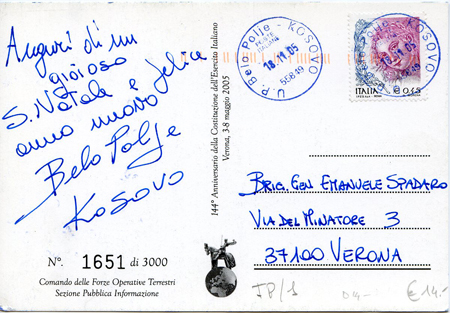 Auguri di un
gioioso
S. Natale e felice
anno nuovo
Belo Polje
Kosovo
N°. 1651 di 3000
Comando delle Forze Operative Terrestri
Sezione Pubblica Informazione
144° Anniversario della Costituzione dell'Esercito Italiano
Verona, 3-8 maggio 2005
U.P. Belo Polje - KOSOVO
18.11.05
55849
Belo Polje - KOSOVO
18.11.05
ITALIA € 0,45
BRIG. GEN EMANUELE SPADARO
VIA DEL MINATORE 3
37100 VERONA
€ 14.-